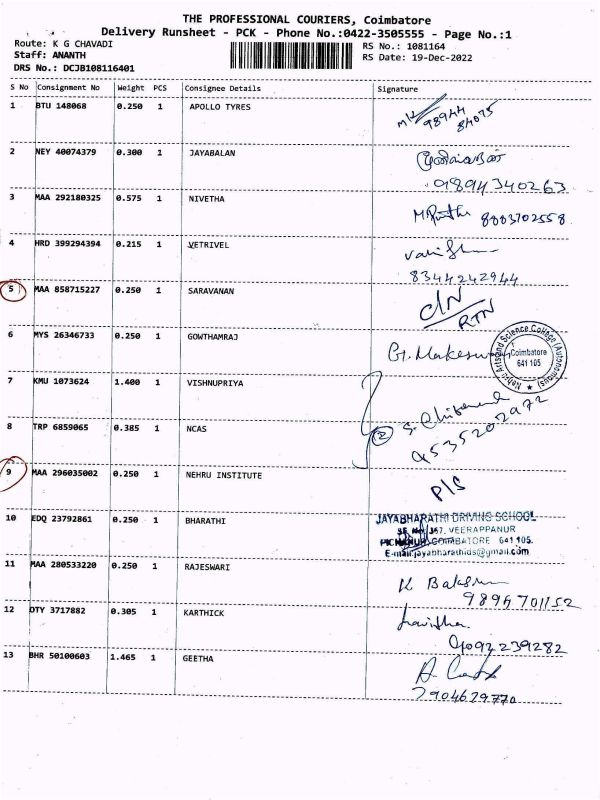 THE PROFESSIONAL COURIERS, Coimbatore
Delivery Runsheet - PCK - Phone No.:0422-3505555 - Page No.:1
Route: K G CHAVADI
RS No.: 1081164
Staff: ANANTH
RS Date: 19-Dec-2022
DRS No.: DCJB108116401
S No Consignment No Weight PCS Consignee Details Signature
1 BTU 148068 0.250 1 APOLLO TYRES
98944
84075
2 NEY 40074379 0.300 1 JAYABALAN
9894340263
3 MAA 292180325 0.575 1 NIVETHA
8883702558
4 HRD 399294394 0.215 1 VETRIVEL
8344242944
5 MAA 858715227 0.250 1 SARAVANAN
C/N
RTN
6 MYS 26346733 0.250 1 GOWTHAMRAJ
Nehru Arts and Science College (Autonomous)
Coimbatore
641 105
7 KMU 1073624 1.400 1 VISHNUPRIYA
8 TRP 6859065 0.385 1 NCAS
2
9535202972
9 MAA 296035002 0.250 1 NEHRU INSTITUTE
P/S
10 EDQ 23792861 0.250 1 BHARATHI
JAYABHARATHI DRIVING SCHOOL
VEERAPPANUR
PICHANUR, COIMBATORE 641 105.
E-mail:jayabharathids@gmail.com
11 MAA 280533220 0.250 1 RAJESWARI
9894701152
12 OTY 3717882 0.305 1 KARTHICK
9092239282
13 BHR 50100603 1.465 1 GEETHA
7904679770